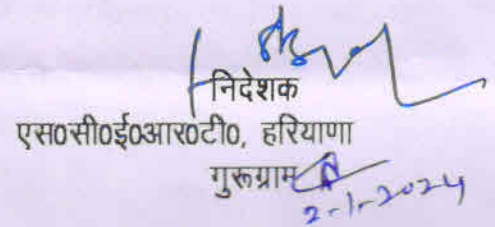 निदेशक
एस0सी0ई0आर0टी0, हरियाणा
गुरूग्राम
2-1-2024